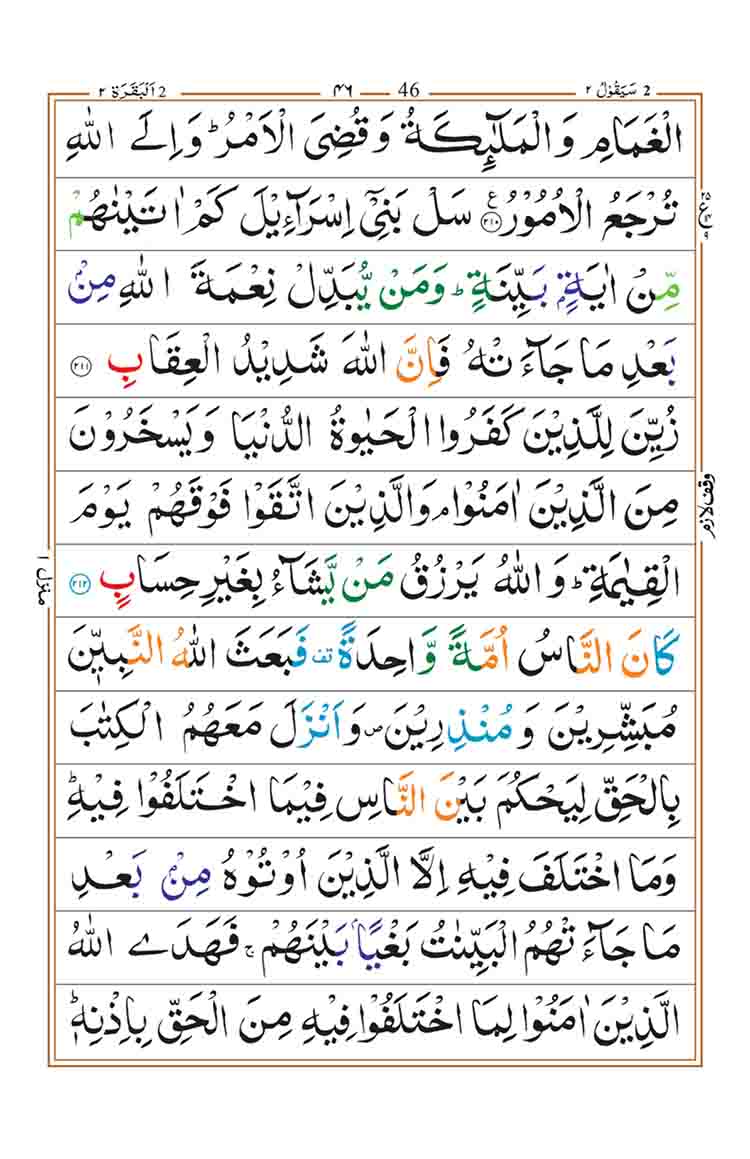 2 سَيَقُوۡلُ ۲ 46 ۴۶ 2 اَلۡبَقَرَة ۲
الۡغَمَامِ وَالۡمَلٰٓٮِٕکَةُ وَقُضِىَ الۡاَمۡرُ‌ؕ وَاِلَى اللّٰهِ
تُرۡجَعُ الۡاُمُوۡرُ ۲۱۰ سَلۡ بَنِىۡٓ اِسۡرَآءِيۡلَ كَمۡ اٰتَيۡنٰهُمۡ
مِّنۡ اٰيَةٍۢ بَيِّنَةٍ ‌ؕ وَمَنۡ يُّبَدِّلۡ نِعۡمَةَ اللّٰهِ مِنۡۢ
بَعۡدِ مَا جَآءَتۡهُ فَاِنَّ اللّٰهَ شَدِيۡدُ الۡعِقَابِ ۲۱۱
زُيِّنَ لِلَّذِيۡنَ كَفَرُوا الۡحَيٰوةُ الدُّنۡيَا وَيَسۡخَرُوۡنَ
مِنَ الَّذِيۡنَ اٰمَنُوۡا ‌ۘ وَالَّذِيۡنَ اتَّقَوۡا فَوۡقَهُمۡ يَوۡمَ
الۡقِيٰمَةِ ‌ؕ وَاللّٰهُ يَرۡزُقُ مَنۡ يَّشَآءُ بِغَيۡرِ حِسَابٍ ۲۱۲
كَانَ النَّاسُ اُمَّةً وَّاحِدَةً قف فَبَعَثَ اللّٰهُ النَّبِيّٖنَ
مُبَشِّرِيۡنَ وَمُنۡذِرِيۡنَ ص وَاَنۡزَلَ مَعَهُمُ الۡكِتٰبَ
بِالۡحَقِّ لِيَحۡكُمَ بَيۡنَ النَّاسِ فِيۡمَا اخۡتَلَفُوۡا فِيۡهِ ‌ؕ
وَمَا اخۡتَلَفَ فِيۡهِ اِلَّا الَّذِيۡنَ اُوۡتُوۡهُ مِنۡۢ بَعۡدِ
مَا جَآءَتۡهُمُ الۡبَيِّنٰتُ بَغۡيًاۢ بَيۡنَهُمۡ ‌ۚ فَهَدَى اللّٰهُ
الَّذِيۡنَ اٰمَنُوۡا لِمَا اخۡتَلَفُوۡا فِيۡهِ مِنَ الۡحَقِّ بِاِذۡنِهٖ ‌ؕ
وقف لازم
منزل ۱